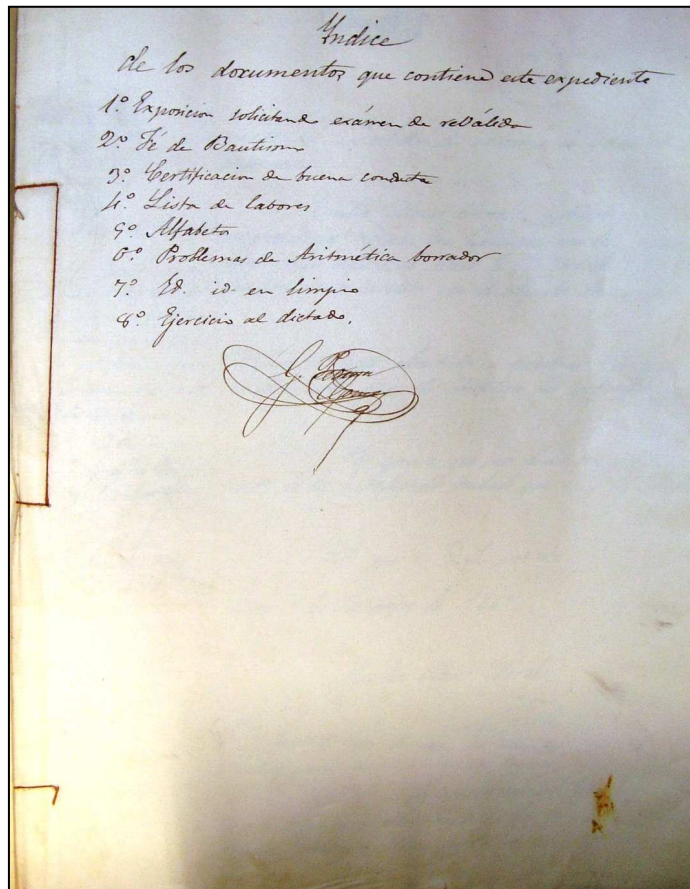 Yndice
de los documentos que contiene este expediente
1º Exposicion solicitando exámen de reválida
2º Fé de Bautismo
3º Certificacion de buena conducta
4º Lista de labores
5º Alfabeto
6º Problemas de Aritmética borrador
7º Id. id. en limpio
8º Ejercicio al dictado.
G.